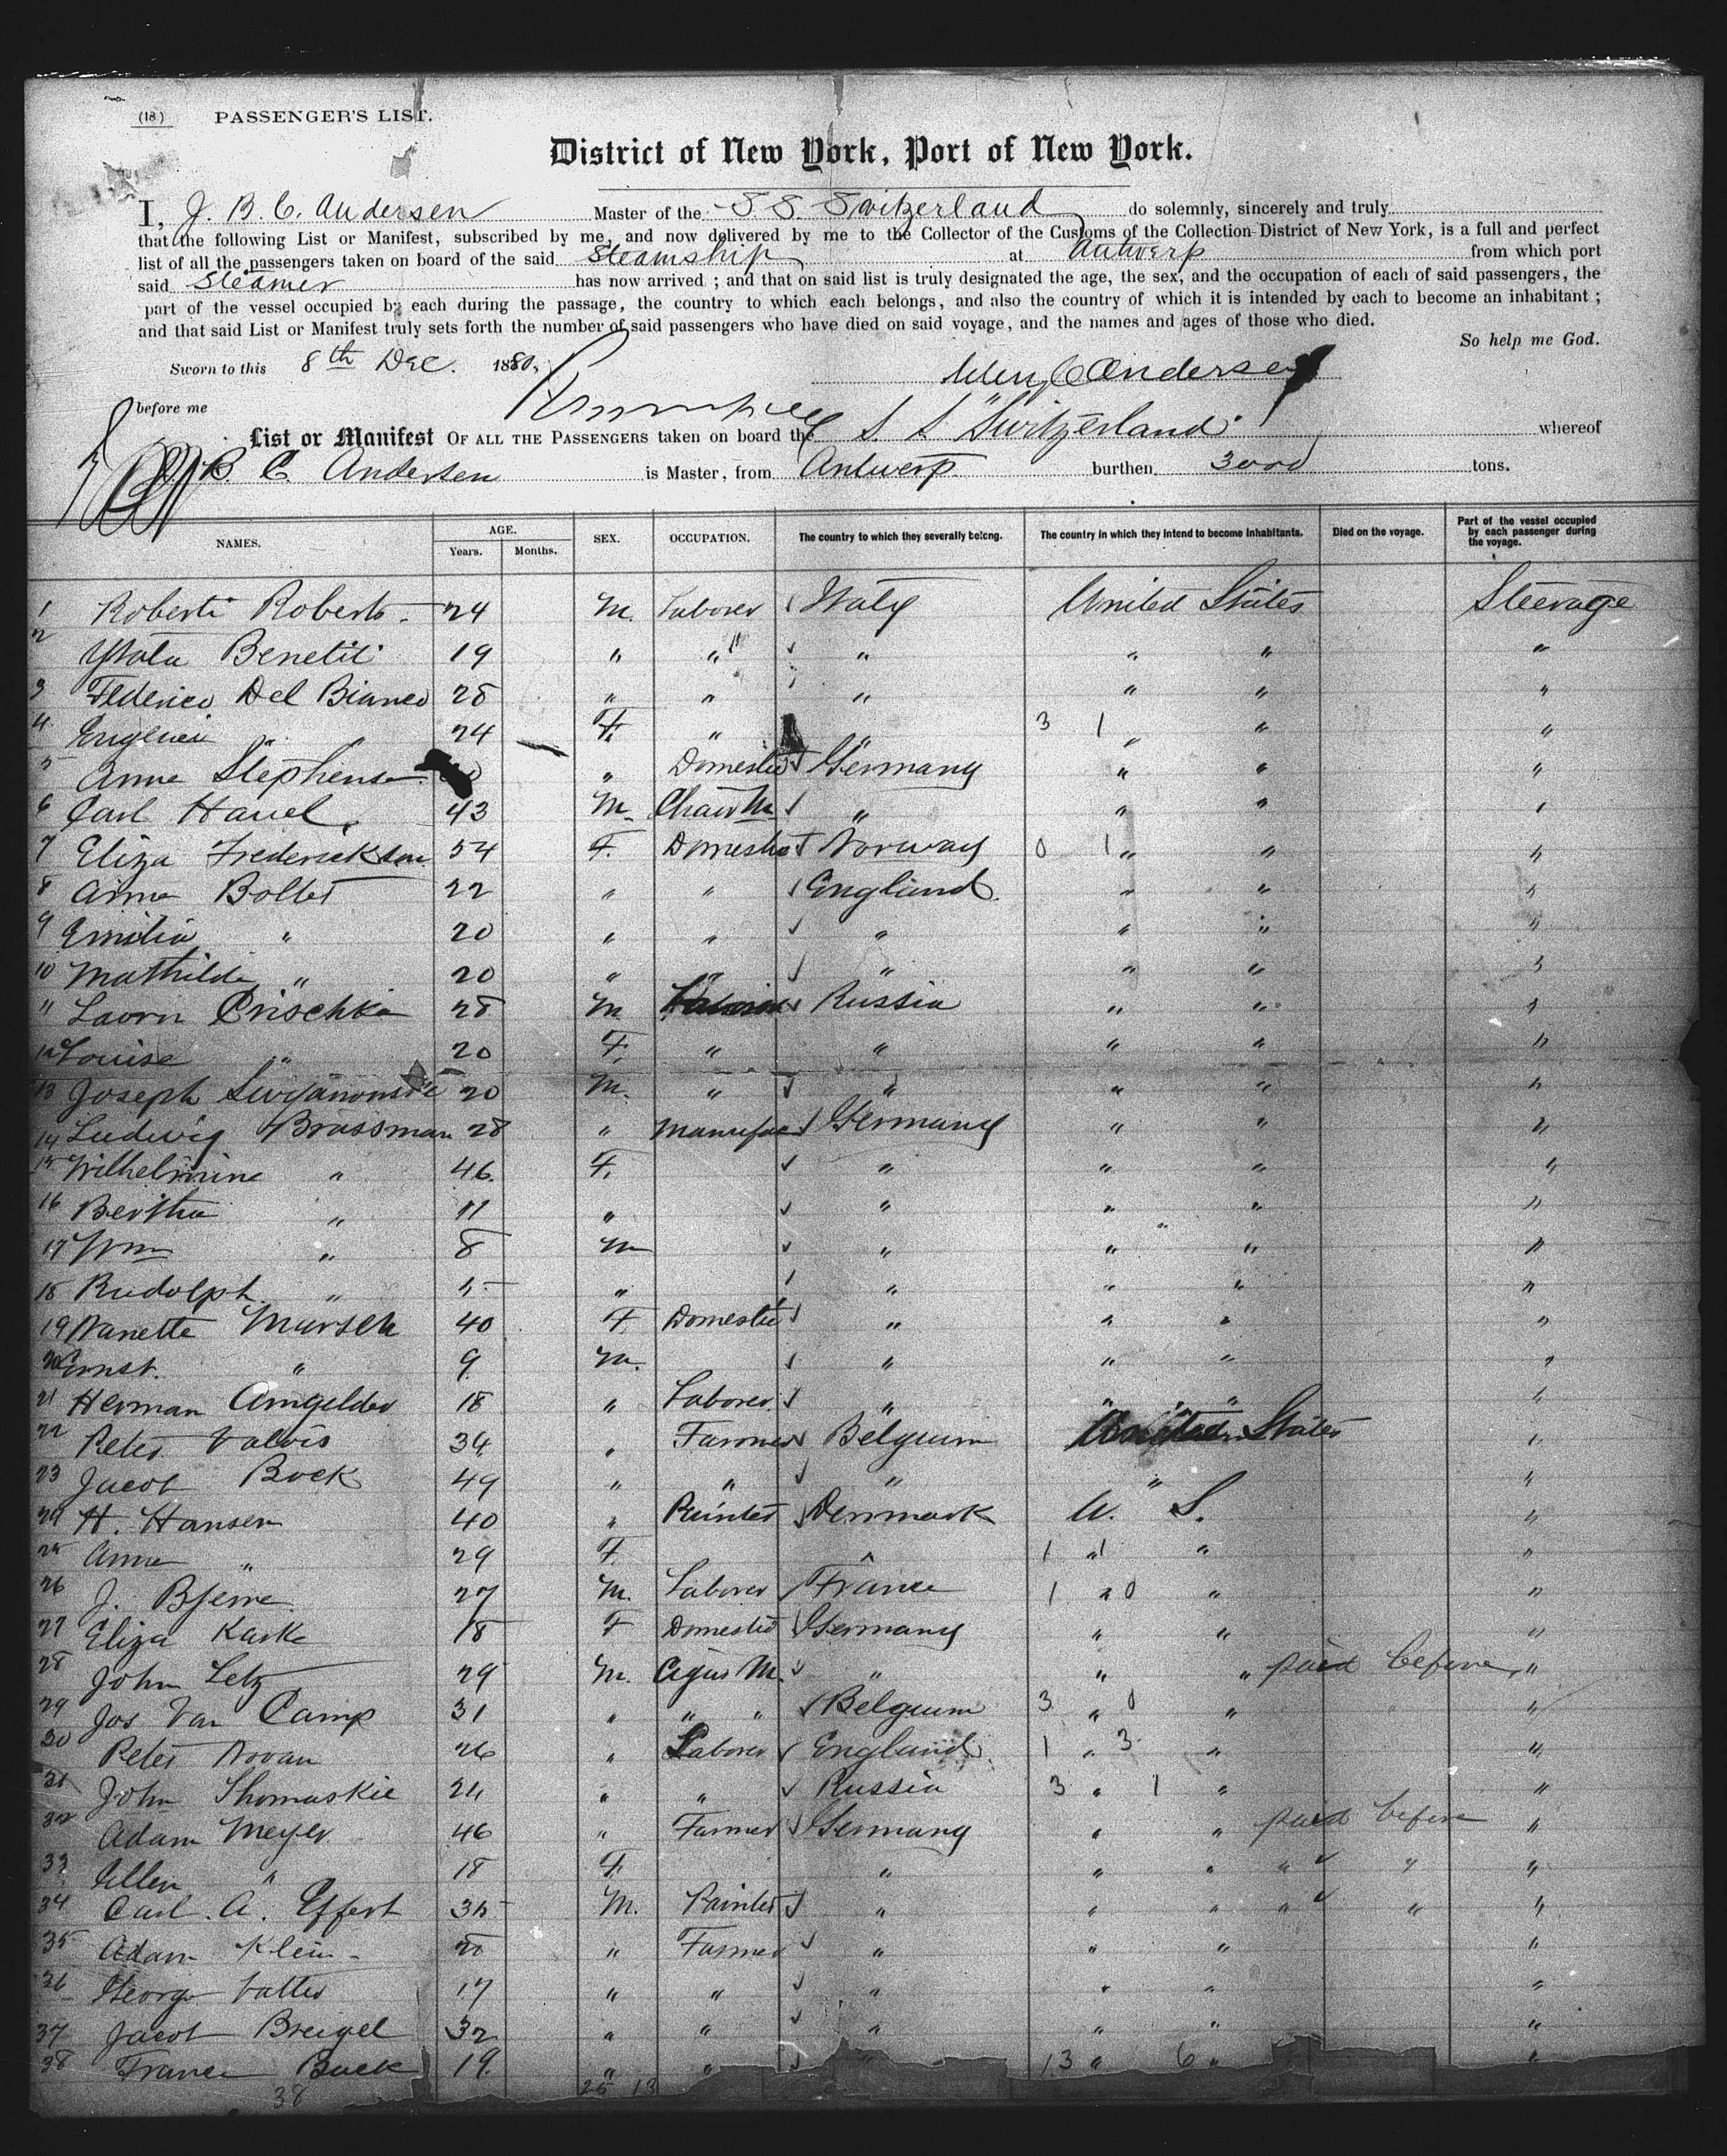 (18) PASSENGER'S LIST.
District of New York, Port of New York.
I, J. B. C. Andersen Master of the S. S. Switzerland do solemnly, sincerely and truly
that the following List or Manifest, subscribed by me, and now delivered by me to the Collector of the Customs of the Collection District of New York, is a full and perfect
list of all the passengers taken on board of the said Steamship at Antwerp from which port
said Steamer has now arrived ; and that on said list is truly designated the age, the sex, and the occupation of each of said passengers, the
part of the vessel occupied by each during the passage, the country to which each belongs, and also the country of which it is intended by each to become an inhabitant ;
and that said List or Manifest truly sets forth the number of said passengers who have died on said voyage, and the names and ages of those who died.
So help me God.
Sworn to this 8th Dec. 1880,
Andersen
before me
List or Manifest OF ALL THE PASSENGERS taken on board the S. S "Switzerland" whereof
B. C. Andersen is Master, from Antwerp burthen 3000 tons.
NAMES. AGE. Years. Months. SEX. OCCUPATION. The country to which they severally belong. The country in which they intend to become inhabitants. Died on the voyage. Part of the vessel occupied by each passenger during the voyage.
1 Roberti Roberto 24 M. Laborer Italy United States Steerage
2 Benetti 19 " " " " " "
3 Federico Del Bianco 28 " " " " " "
4 " 24 F. " " 3 1 " " "
5 Anne Stephens F " Domestic Germany " " "
6 Carl Hauel 43 M. " " " "
7 Eliza Frederickson 54 F. Domestic Norway 0 1 " " "
8 Anna Bolter 22 " " England " " "
9 Emilia " 20 " " " " " "
10 Mathilde " 20 " " " " " "
11 Prischka 28 M Russia " " "
12 Louise " 20 F. " " " " "
13 Joseph 20 M. " " " " "
14 Ludwig Brassman 28 " Manufac Germany " " "
15 Wilhelmine " 46 F. " " " "
16 Bertha " 11 " " " " "
17 Wm " 8 M " " " "
18 Rudolph " 5 " " " " "
19 Nanette Marsch 40 F. Domestic " " " "
20 Ernst. " 9 M. " " " "
21 Herman 18 " Laborer " " " "
22 Peter Valvis 34 " Farmer Belgium United States "
23 Jacob Bock 49 " " " " "
24 H. Hansen 40 " Denmark U. S. "
25 Anna " 29 F. 1 " 1 " "
26 J. Bjerre 27 M. Laborer France 1 " 0 " "
27 Eliza Karke 18 F Domestic Germany " " "
28 John Letz 29 M. Cigar M. " " " paid before "
29 Jos Van Camp 31 " " " Belgium 3 " 0 " "
30 Peter 26 " Laborer England 1 " 3 " "
31 John Thomaskie 24 " " Russia 3 " 1 " "
32 Adam Meyer 46 " Farmer Germany " " paid before "
33 Ellen " 18 F. " " " " " "
34 Carl A. Effert 35 M. Painter " " " " " "
35 Adam Klein " Farmer " " " "
36 George Vatter 17 " " " " " "
37 Jacob Breigel 32 " " " " " "
38 Franc Buck 19 " " " 13 " 6 " "
38 25 13